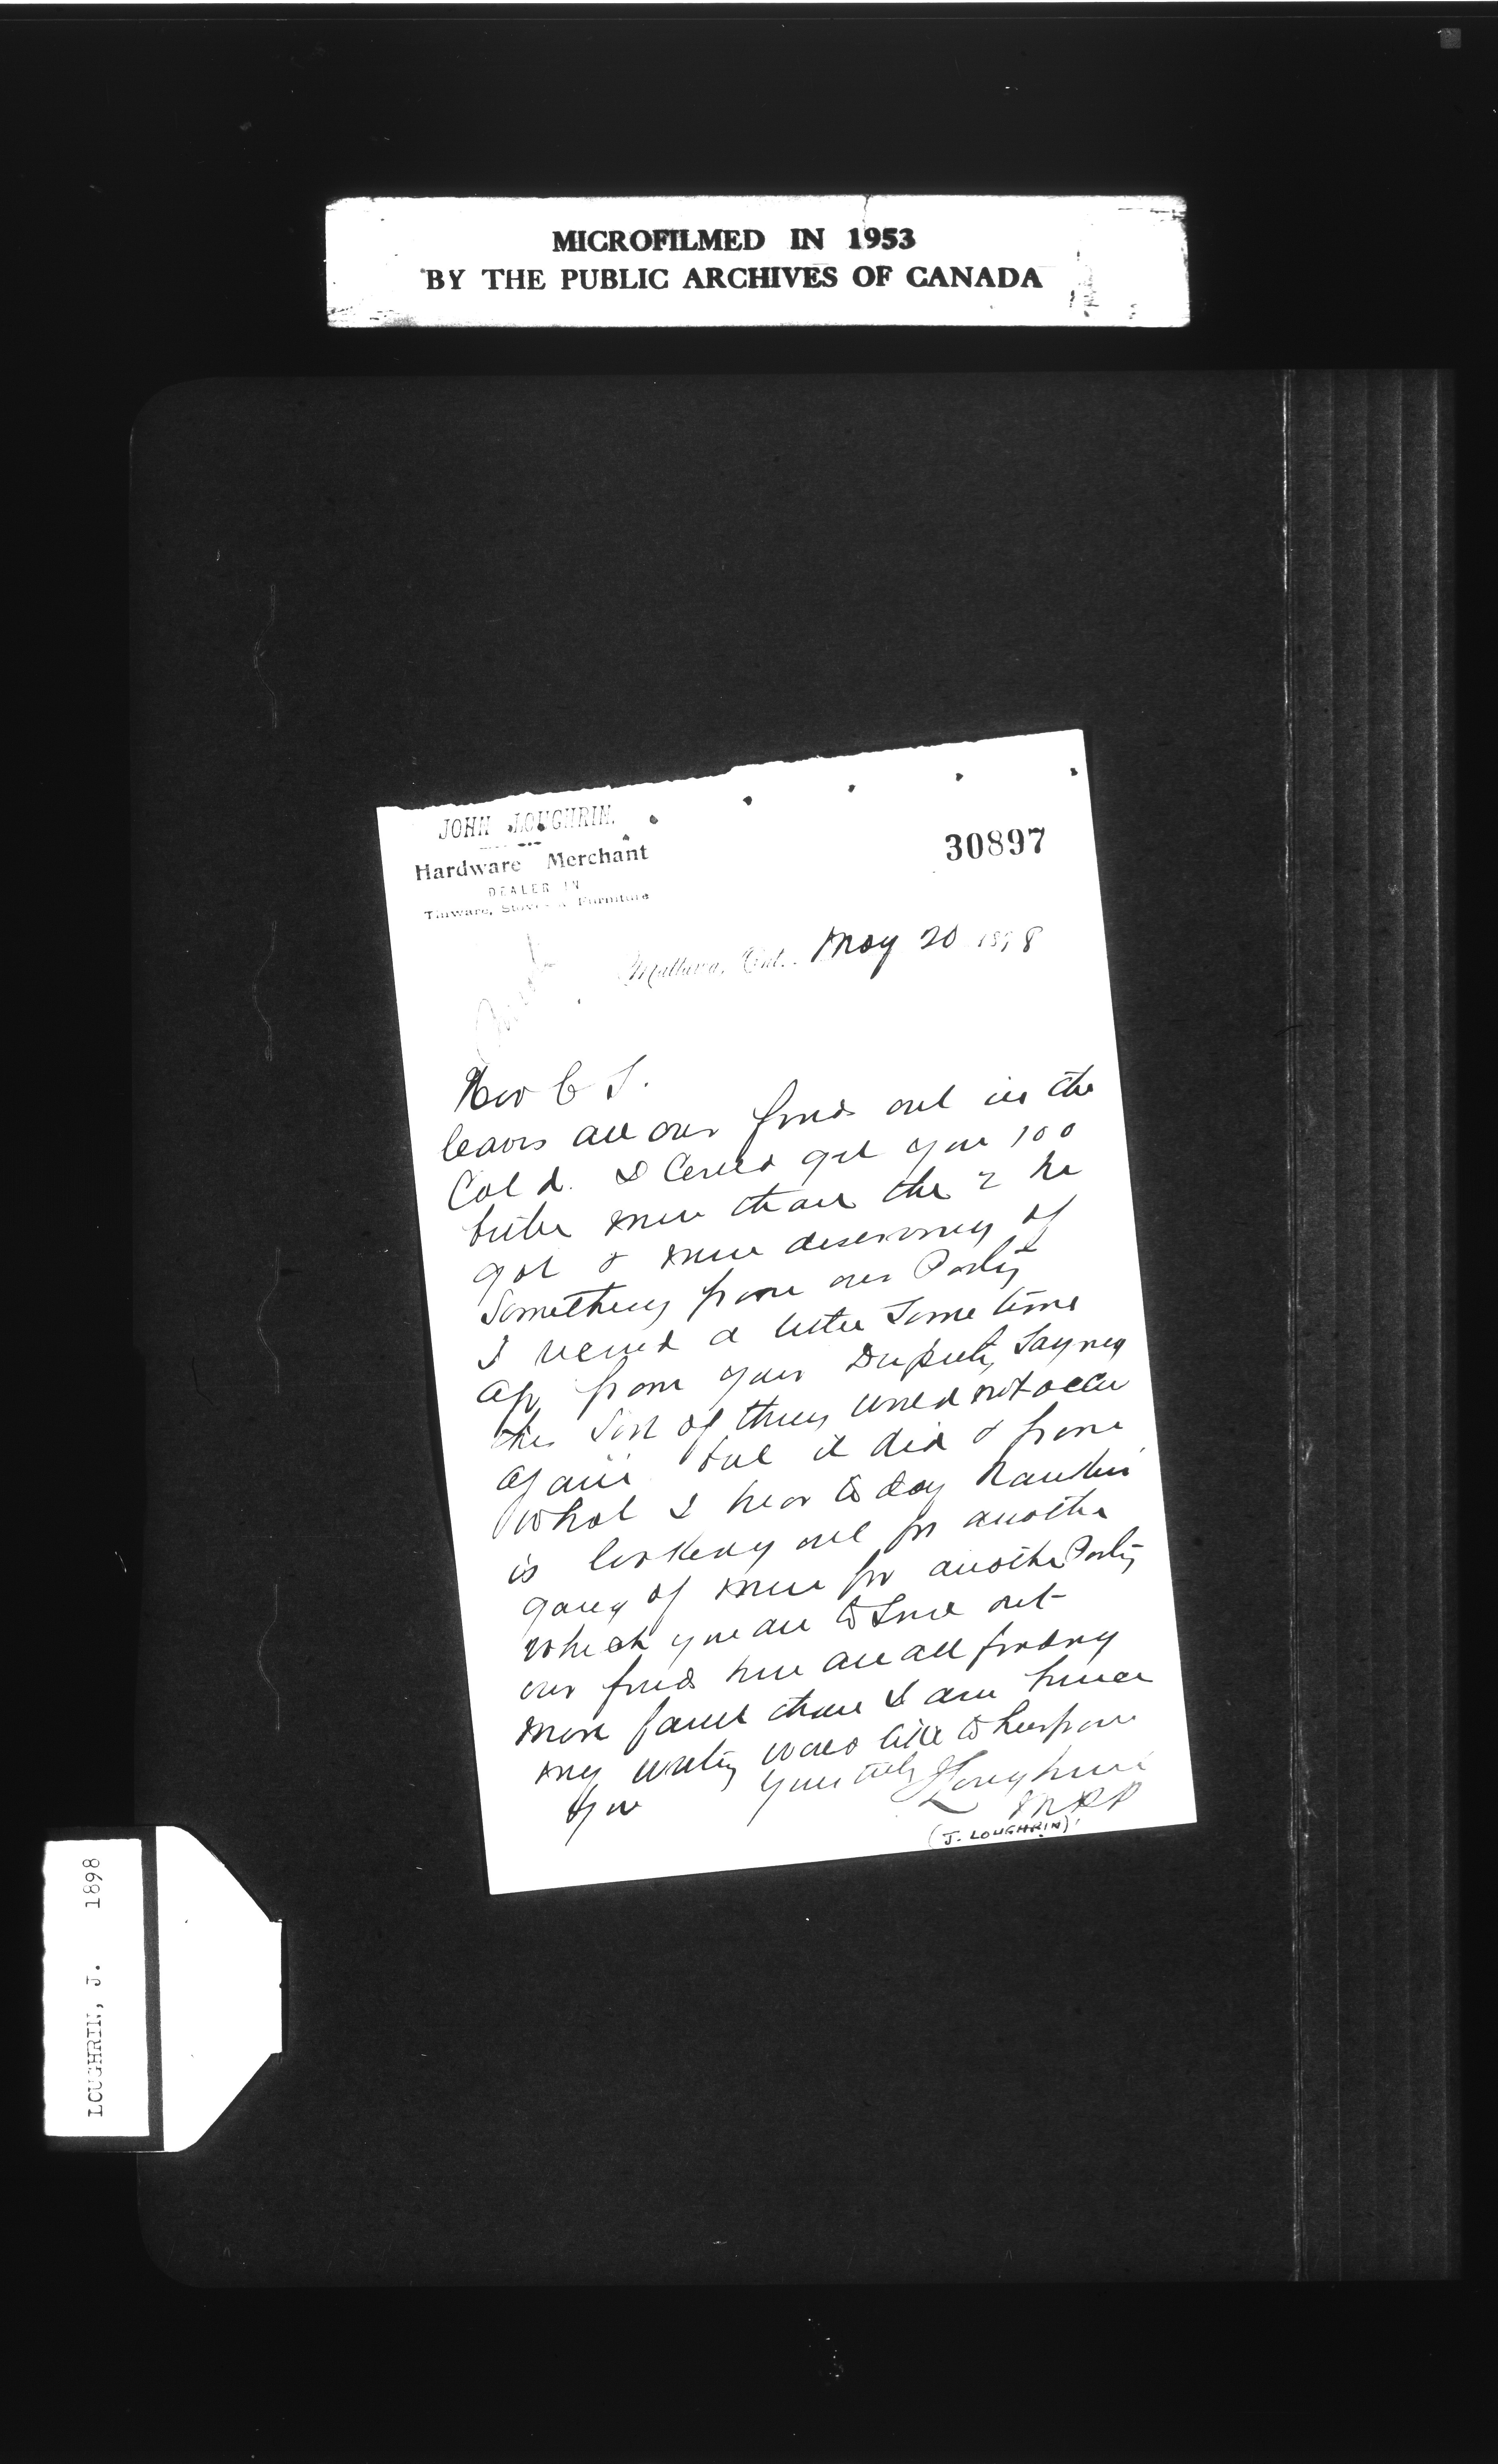 MICROFILMED IN 1953
BY THE PUBLIC ARCHIVES OF CANADA
JOHN LOUGHRIN.
Hardware Merchant
DEALER IN
Tinware, Stoves & Furniture
30897
Mattawa, Ont., May 20 1898
leaves all our friends out in the
Cold. I Could get you 100
better men than the 2 he
got & more deserving of
Something from our Party
I received a letter Some time
ago from your Deputy Saying
this Sort of thing would not occur
again but it did & from
what I hear to day Rankin
is looking out for another
gang of men for another Party
which you are to Send out
our friends here are all finding
more fault than I am hence
my writing would like to hear from
you yours truly J Loughrin
MPP
(J. LOUGHRIN)
LOUGHRIN, J. 1898